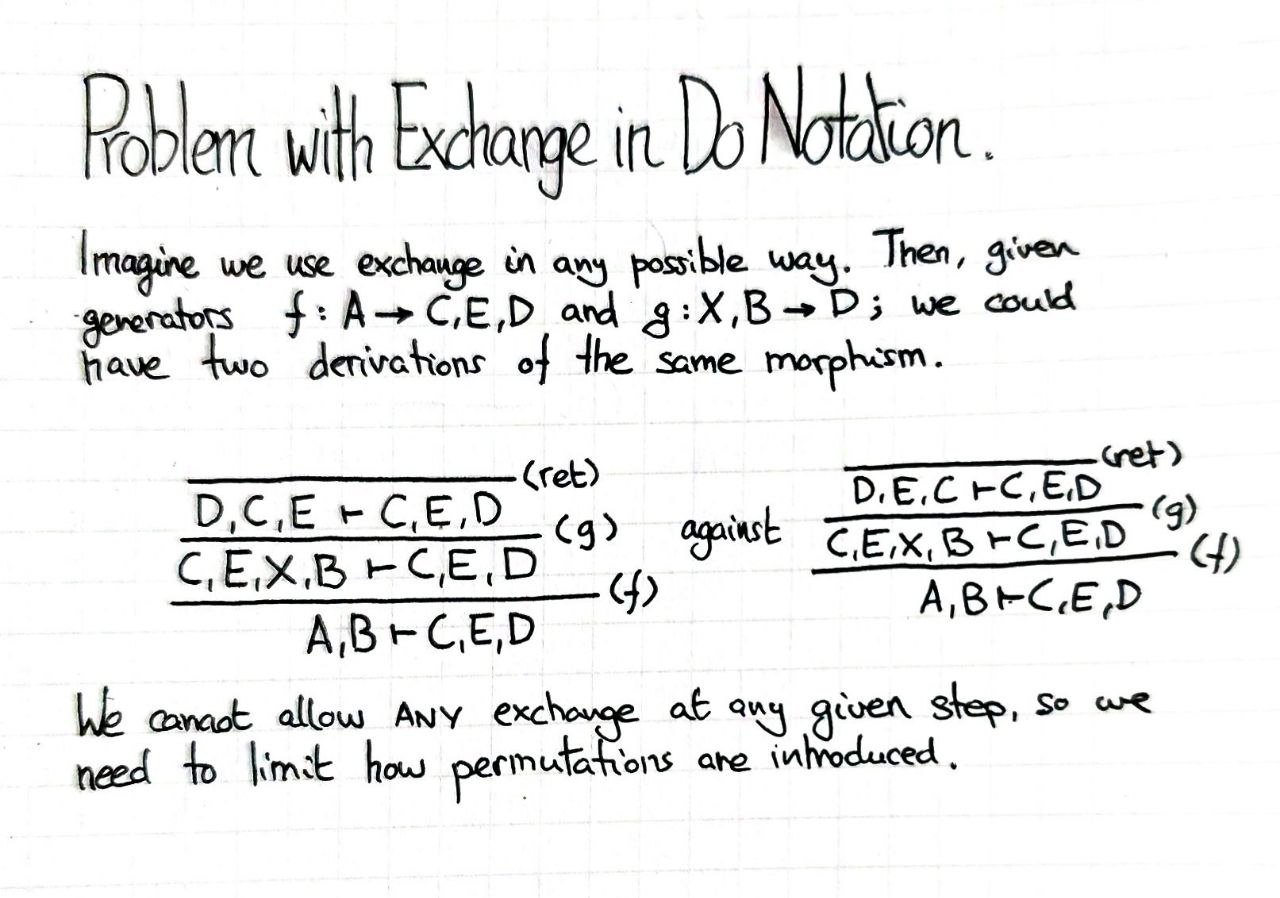 Problem with Exchange in Do Notation.
Imagine we use exchange in any possible way. Then, given
generators f : A → C, E, D and g : X, B → D ; we could
have two derivations of the same morphism.
(ret)
D, C, E ⊢ C, E, D
(g)
C, E, X, B ⊢ C, E, D
(f)
A, B ⊢ C, E, D
against
(ret)
D, E, C ⊢ C, E, D
(g)
C, E, X, B ⊢ C, E, D
(f)
A, B ⊢ C, E, D
We cannot allow ANY exchange at any given step, so we
need to limit how permutations are introduced.